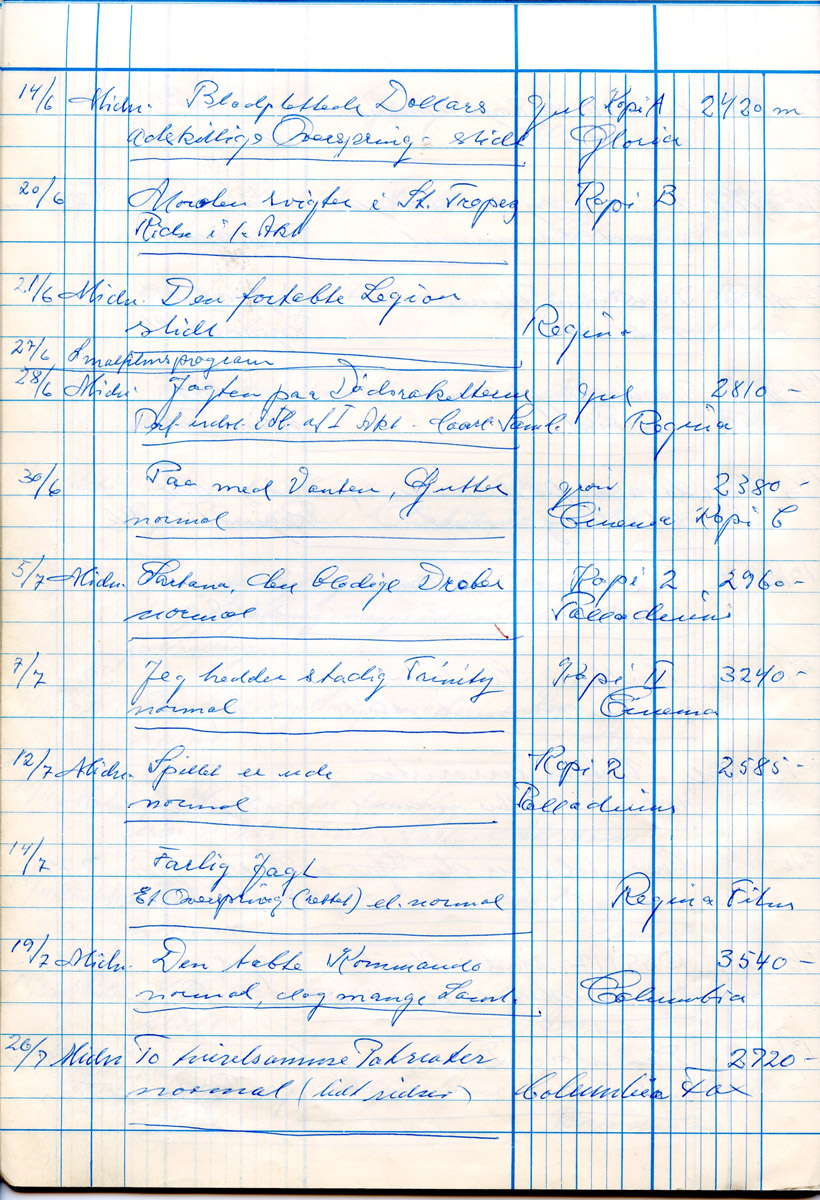 14/6 Midn. Blodplettede Dollars gul Kopi A 2420 m
adskillige Overspring - slidt Gloria
20/6 Moralen svigter i St. Tropez Kopi B
Ridse i 1. Akt
21/6 Midn. Den fortabte Legion
slidt Regina
27/6 Smalfilmsprogram
28/6 Midn. Jagten paa Dödsraketterne gul 2810 -
Perf. af I Akt - Saml. Regina
30/6 Paa med Vanten, Gutter grøn 2380 -
normal Cinema Kopi C
5/7 Midn. Sartana, den blodige Dræber Kopi 2 2960 -
normal Palladium
7/7 Jeg hedder stadig Trinity Kopi II 3240 -
normal Cinema
12/7 Midn. Spillet er ude Kopi 2 2585 -
normal Palladium
14/7 Farlig Jagt
Et Overspring (rettet) el. normal Regina Film
19/7 Midn. Den tabte Kommando 3540 -
normal, dog mange Columbia
26/7 Midn To tvivlsomme Patrioter 2920 -
normal (lidt ridser) Columbia Fox